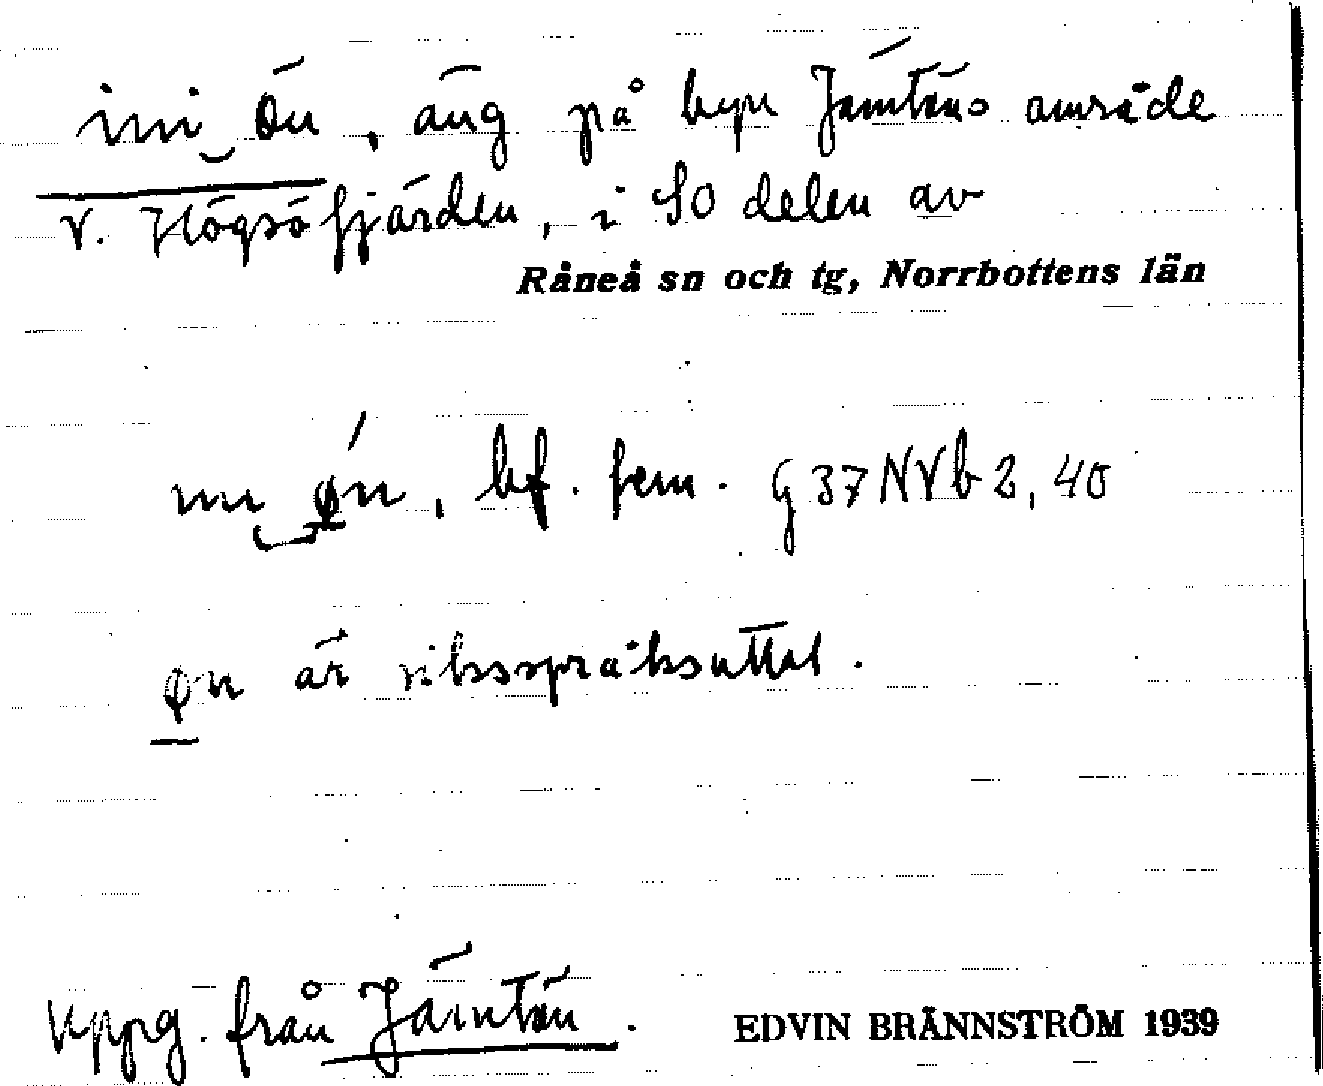 ini ön, äng på byn Jämtöns område
v. Högsöfjärden, i SO delen av
Råneå sn och tg, Norrbottens län
øn, bf. fem. G37NVb2,40
øn är riksspråksuttal.
Uppg. från Jämtön.
EDVIN BRÄNNSTRÖM 1939